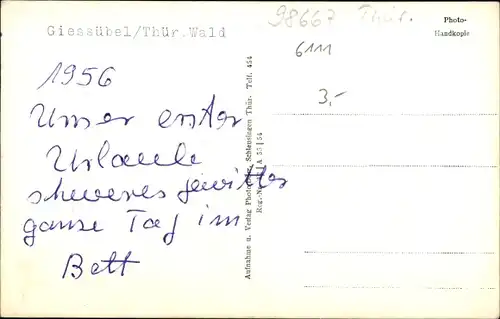 Giessübel/Thür. Wald
98667 Thür.
Photo-
Handkopie
6111
3,-
1956
Unser erster
Urlaub
shweres gewitter
ganze Tag im
Bett
Aufnahme u. Verlag Photo Schleusingen Thür. Telf. 454
Reg.-Nr. A 55|54